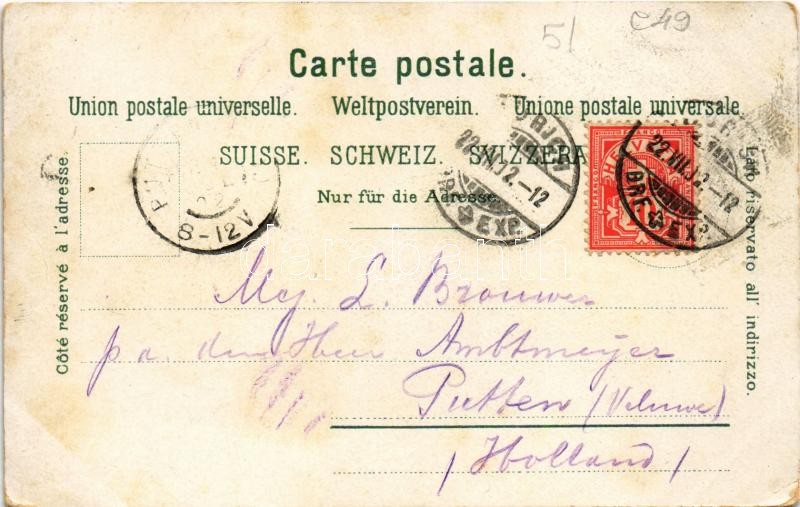 51 c49
Carte postale.
Union postale universelle. Weltpostverein. Unione postale universale.
SUISSE. SCHWEIZ. SVIZZERA
Nur für die Adresse.
Côté réservé à l'adresse.
Lato riservato all' indirizzo.
8-12V
22.VII.02.-12
BRF. EXP.
FRANCO
HELVETIA
10
22.VII.02.-12
BRF. EXP.
Mej. L. Brouwer
p a. den Heer Ambtmeyer
Putten (Veluwe)
(Holland)